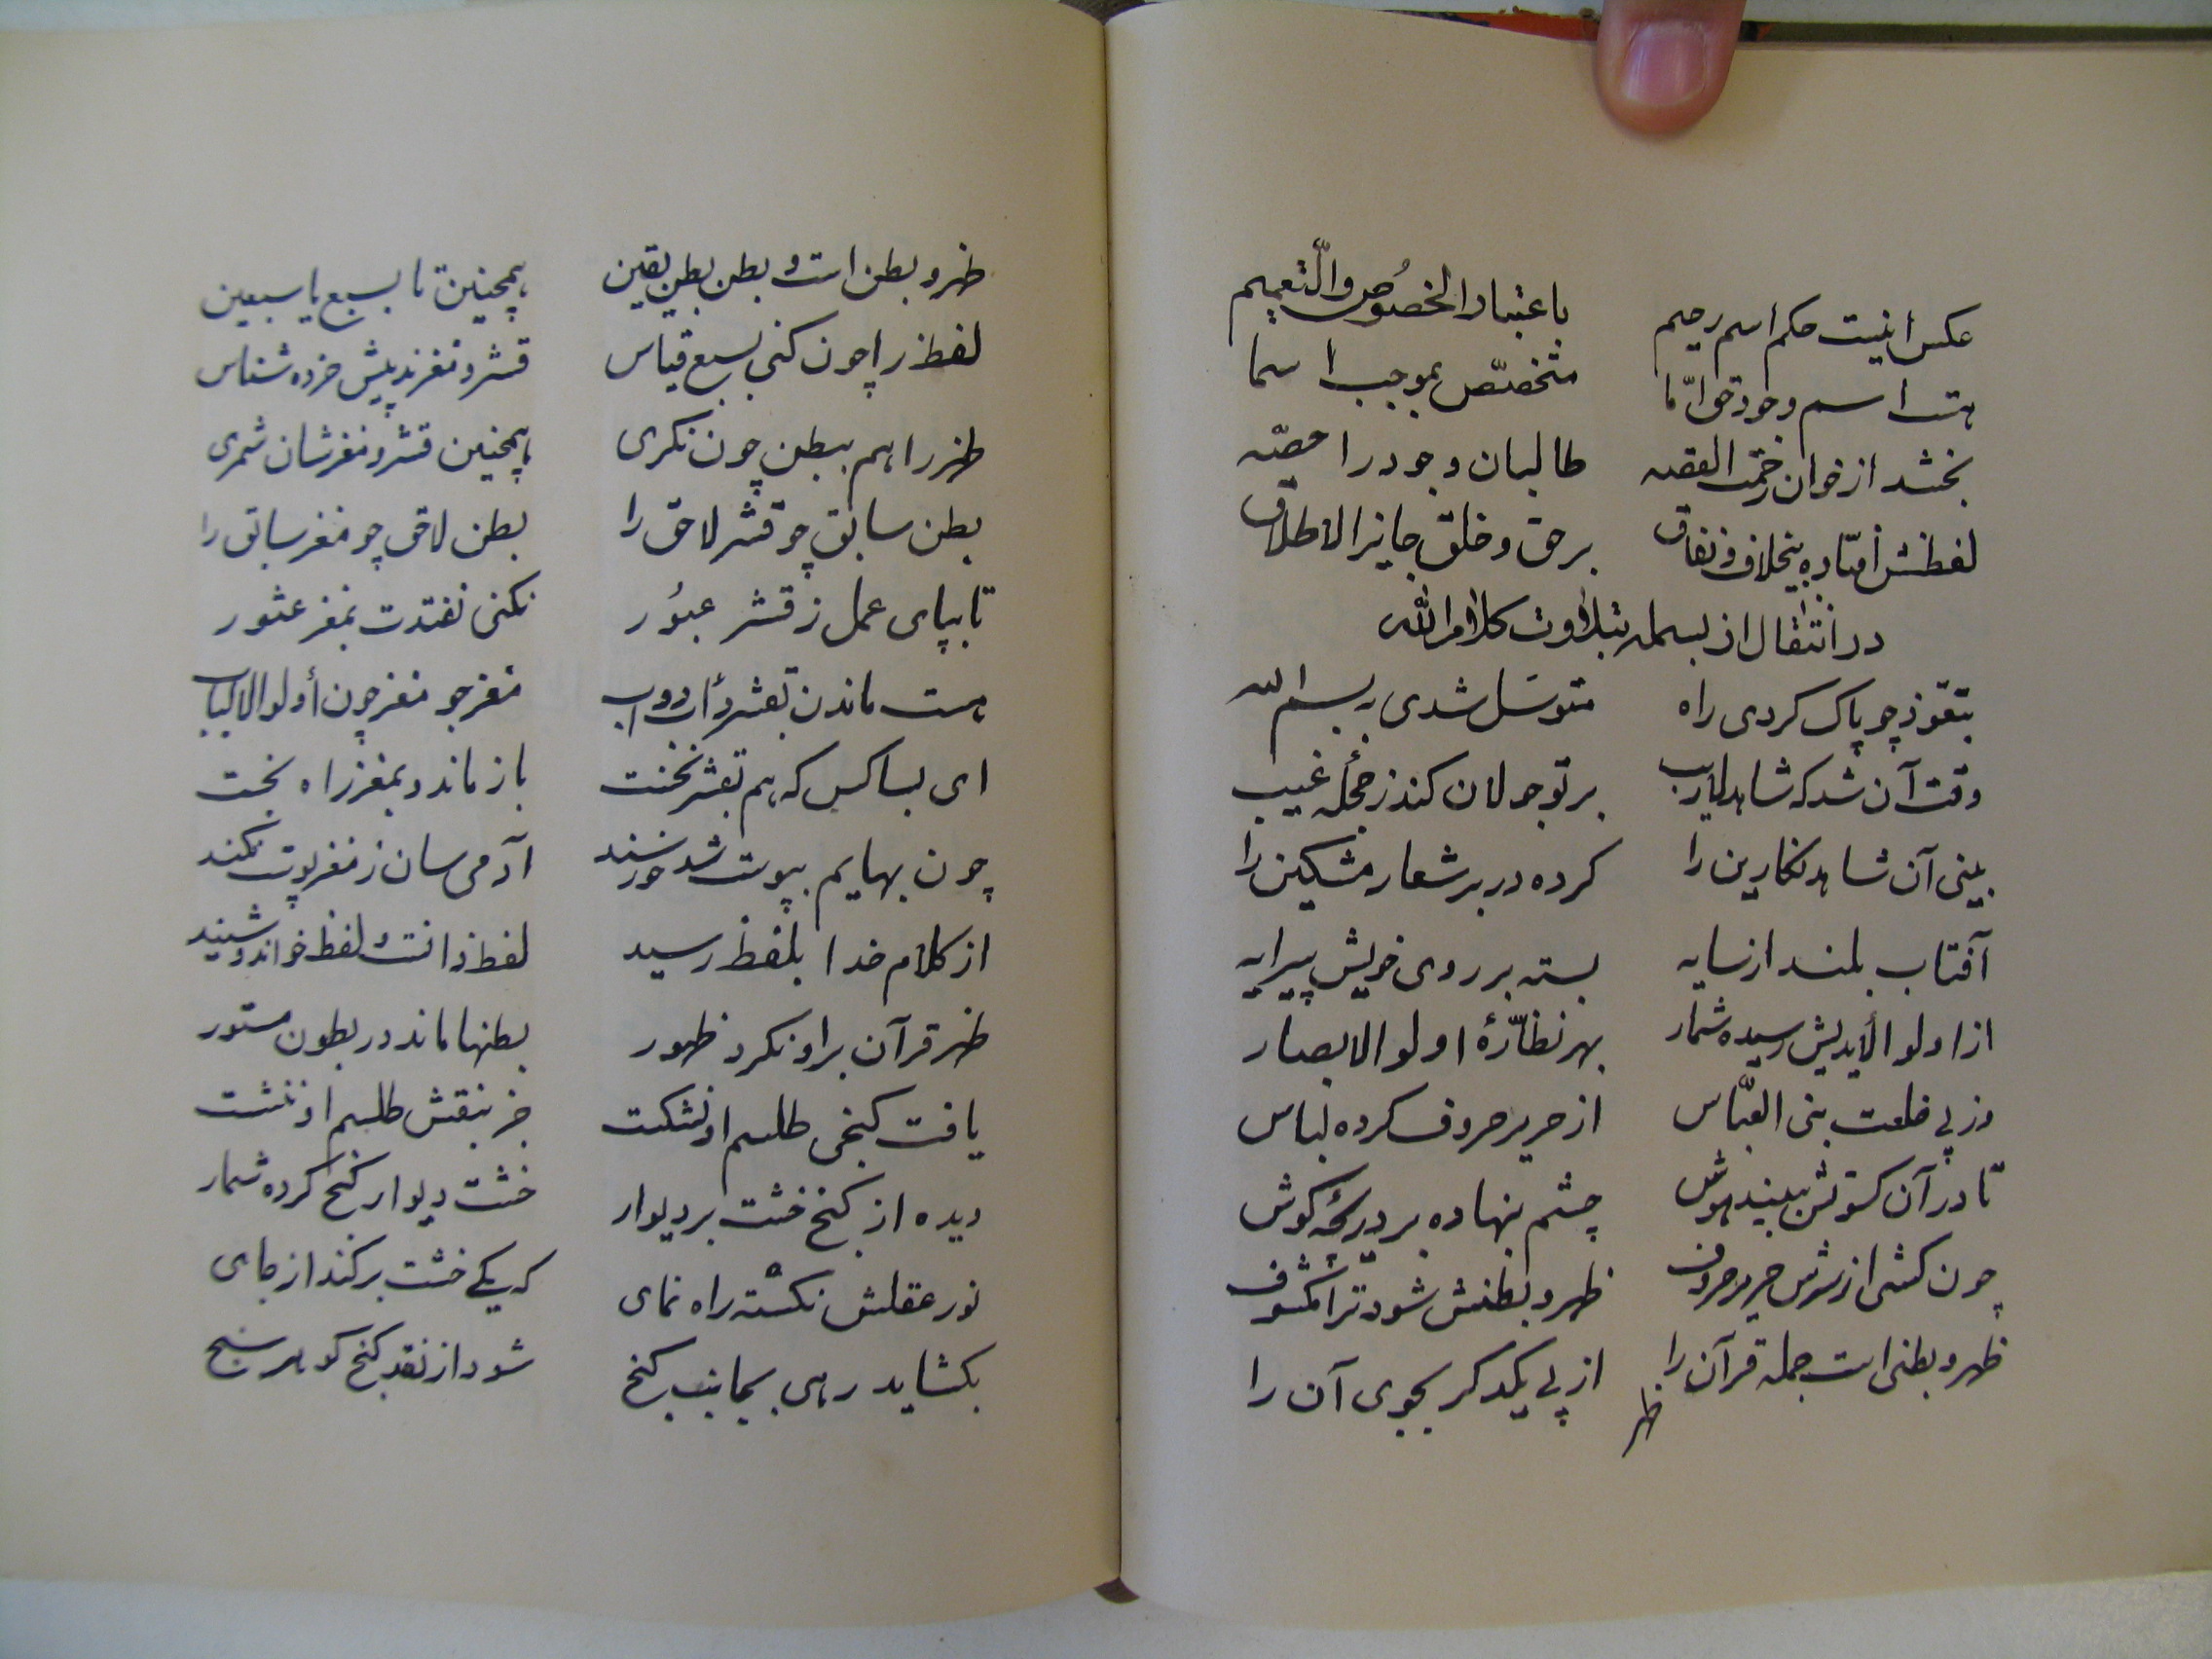 عکس اینست حکم اسم رحیم باعتبار الخصوص والتعمیم
هست اسم وجود حق امّا متخصّص بموجب اسما
بخشد از خوان رحمت القصه طالبان وجود را حصّه
لفظش افتاده بیخلاف و نفاق بر حق و خلق جایز الاطلاق
در انتقال از بسمله بتلاوت کلام الله
بتعوّذ چو پاک کردی راه متوسّل شدی به بسم الله
وقت آن شد که شاهد لاریب بر تو جولان کند ز حجلهٔ غیب
بینی آن شاهد نکارین را کرده در بر شعار مشکین را
آفتاب بلند از سایه بسته بر روی خویش پیرایه
از اولو الأیدیش رسیده شمار بهر نظّارهٔ اولو الابصار
وز پی خلعت بنی العبّاس از حریر حروف کرده لباس
تا در آن کسوتش ببیند هوش چشم بنهاده بر دریچهٔ کوش
چون کشی از سرش حریر حروف ظهر و بطنش شود ترا مکشوف
ظهر و بطنی است جمله قرآن را از پی یکدکر بجوی آن را
ظهر
ظهر و بطن است و بطن بطن یقین همچنین تا بسبع یا سبعین
لفظ را چون کنی بسبع قیاس قشر و مغزند پیش خرده شناس
ظهر را هم ببطن چون نکری همچنین قشر و مغزشان شمری
بطن سابق چو قشر لاحق را بطن لاحق چو مغز سابق را
تا بپای عمل ز قشر عبُور نکنی نفتدت بمغز عثور
هست ماندن بقشر دأب دواب مغز جو مغز چون أولو الالباب
ای بسا کس که هم بقشر نخست باز ماند و بمغز راه نجست
چون بهایم بپوست شد خورسند آدمی سان ز مغز پوست نکند
از کلام خدا بلفظ رسید لفظ دانست و لفظ خواند و شنید
ظهر قرآن برو نکرد ظهور بطنها ماند در بطون مستور
یافت کنجی طلسم او نشکست جز بنقش طلسم او ننشست
دیده از کنج خشت بر دیوار خشت دیوار کنج کرده شمار
نور عقلش نکشته راه نمای که یکی خشت برکند از جای
بکشاید رهی بجانب کنج شود از نقد کنج کوهر سنج